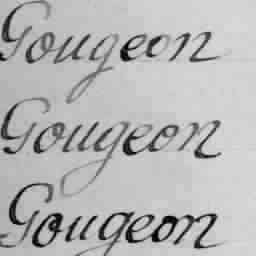 Gougeon
Gougeon
Gougeon